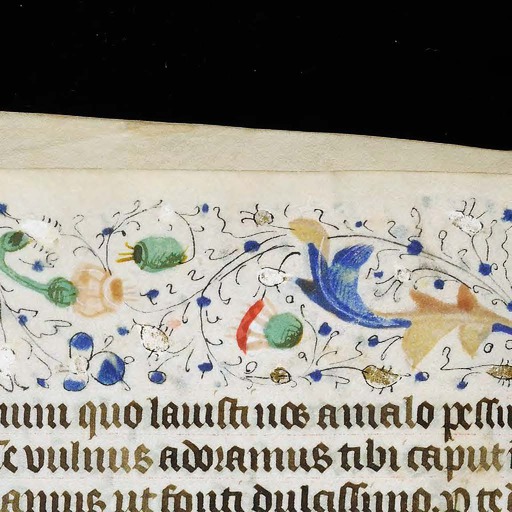 num quo lauisti nos a malo pessi
te vulnus adoramus tibi caput
amus ut fonti dulcissimo. p te